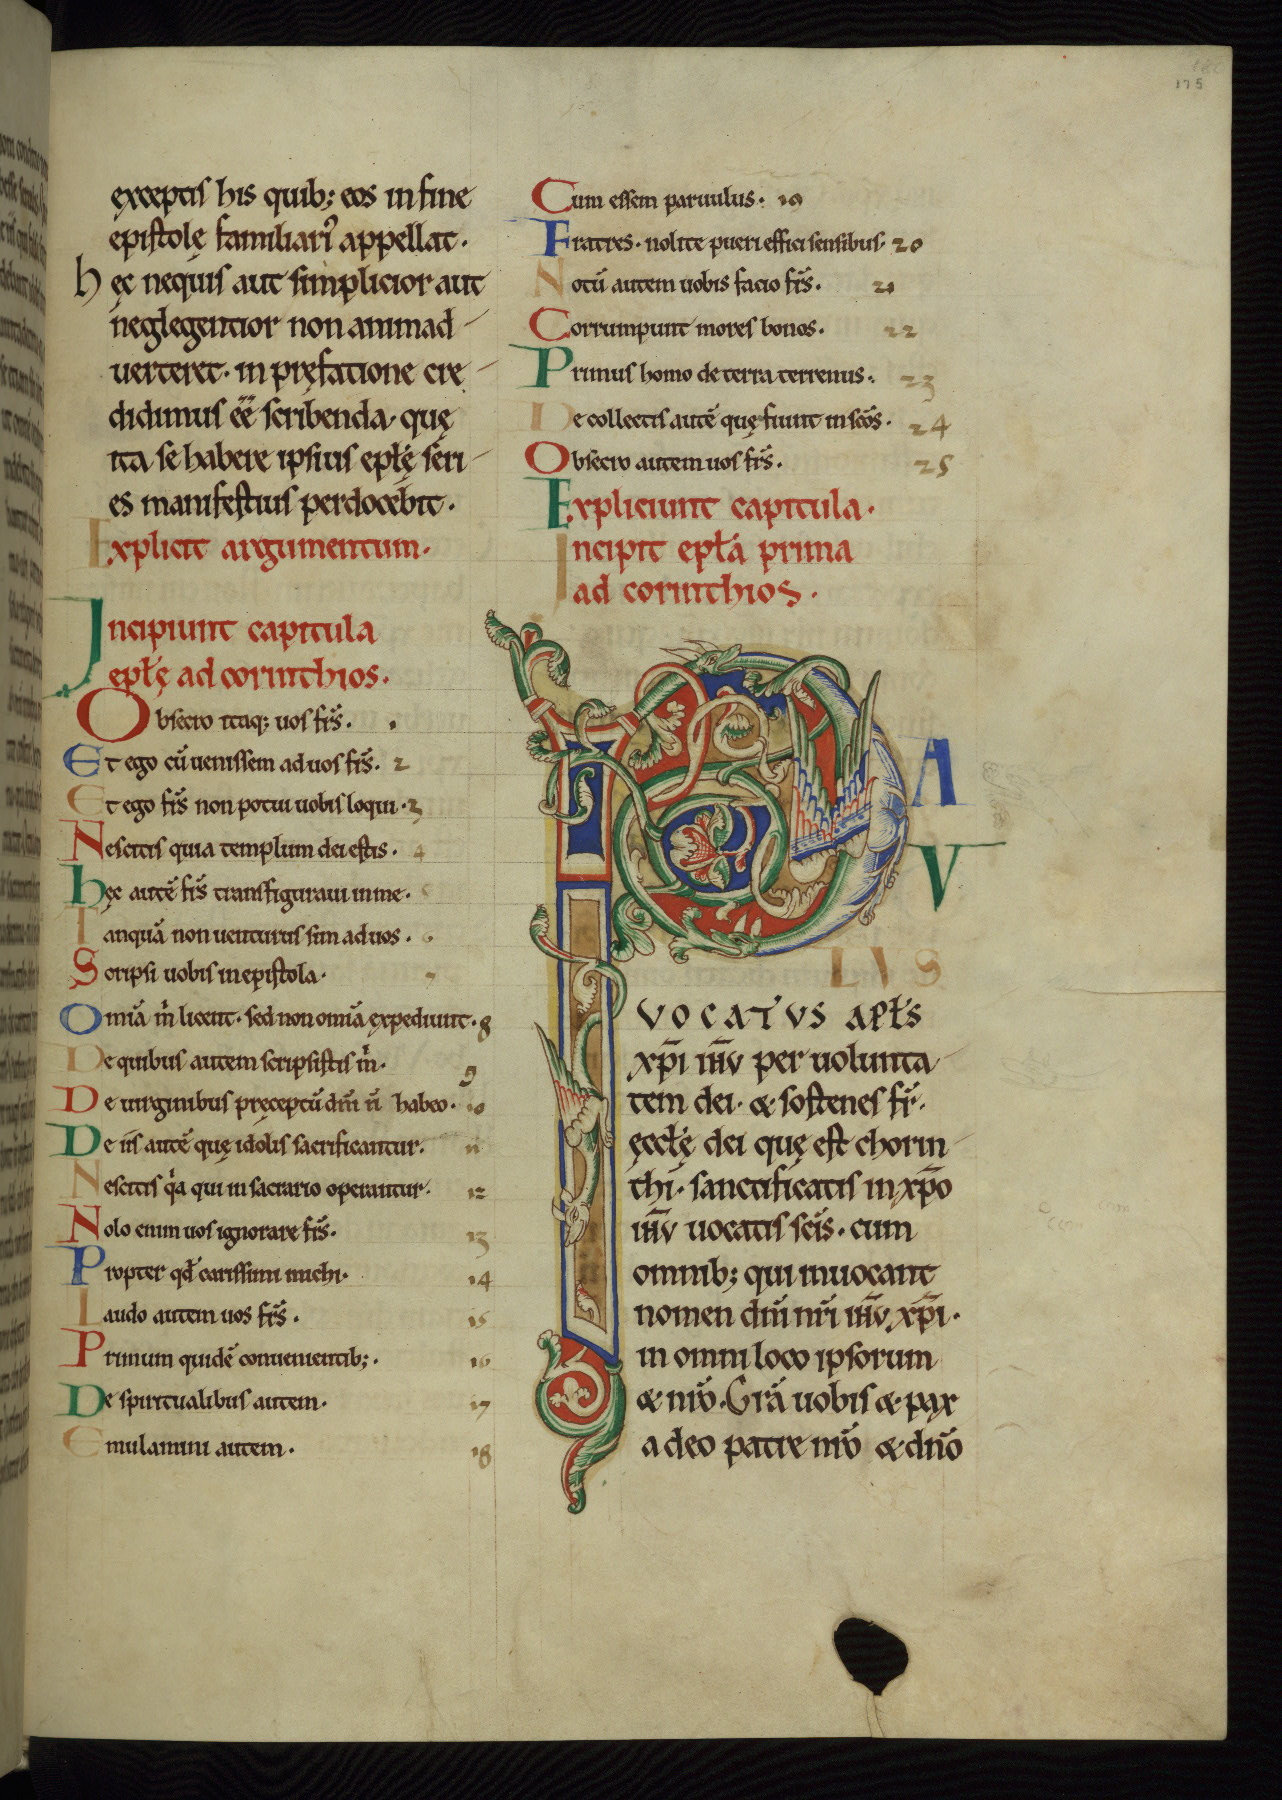 175
exceptis his quib; eos in fine
epistolę familiari᾽ appellat·
hęc nequis aut simplicior aut
neglegentior non animad
uerteret· in pręfatione cre
didimus ēē scribenda· quę
ita se habere ipsius epłę seri
es manifestius perdocebit·
Explicit argumentum·
Incipiunt capitula
epłę ad corinthios·
Obsecro itaq; uos fr̄s· 1
Et ego cū uenissem ad uos fr̄s· 2
Et ego fr̄s non potui uobis loqui· 3
Nescitis quia templum dei estis· 4
hęc autē fr̄s transfiguraui in me· 5
Tanquā non uenturus sim ad uos· 6
Scripsi uobis in epistola· 7
Omīa m̄ licent· sed non omīa expediunt· 8
De quibus autem scripsistis m̄· 9
De uirginibus pręceptū dn̄i n̄ habeo· 10
De iis autē quę idolis sacrificantur· 11
Nescitis qa qui in sacrario operantur· 12
Nolo enim uos ignorare fr̄s· 13
Propter qđ carissimi michi· 14
Laudo autem uos fr̄s· 15
Primum quidē conuenientib;· 16
De spiritualibus autem· 17
Emulamini autem· 18
Cum essem paruulus· 19
Fratres· nolite pueri effici sensibus· 20
Notū autem uobis facio fr̄s· 21
Corrumpunt mores bonos· 22
Primus homo de terra terrenus· 23
De collectis autē quę fiunt in sc̄os· 24
Obsecro autem uos fr̄s· 25
Expliciunt capitula·
Incipit epła prima
ad corinthios·
PAVLVS
VOCATVS APŁS
xp̄i ih̄v per uolunta
tem dei· & sostenes fr̄·
ęccłę dei quę est chorin
thi· sanctificatis in xp̄o
ih̄v uocatis sc̄is· cum
omnib; qui inuocant
nomen dn̄i nr̄i ih̄v xp̄i·
in omni loco ipsorum
& nr̄o· Gr̄a uobis & pax
a deo patre nr̄o & dn̄o